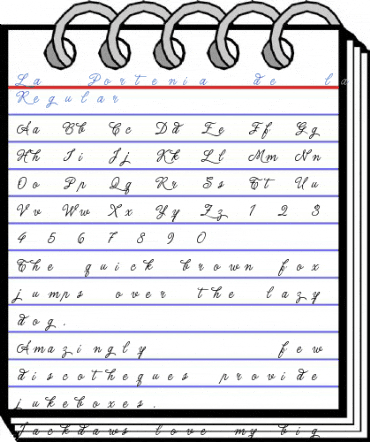 La Portenia de la
Regular
Aa Bb Cc Dd Ee Ff Gg
Hh Ii Jj Kk Ll Mm Nn
Oo Pp Qq Rr Ss Tt Uu
Vv Ww Xx Yy Zz 1 2 3
4 5 6 7 8 9 0
The quick brown fox
jumps over the lazy
dog.
Amazingly few
discotheques provide
jukeboxes.
Jackdaws love my big